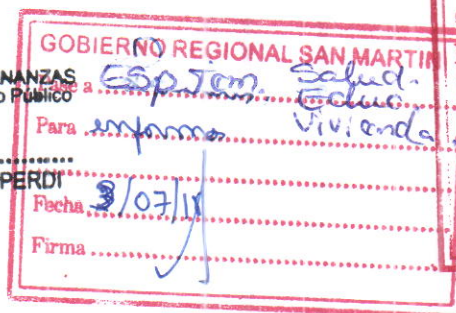 GOBIERNO REGIONAL SAN MARTIN
NANZAS
o Público
Pase a Esp. Salud.
Educ.
Vivienda
Para informes
PERDI
Fecha 3/07/18
Firma